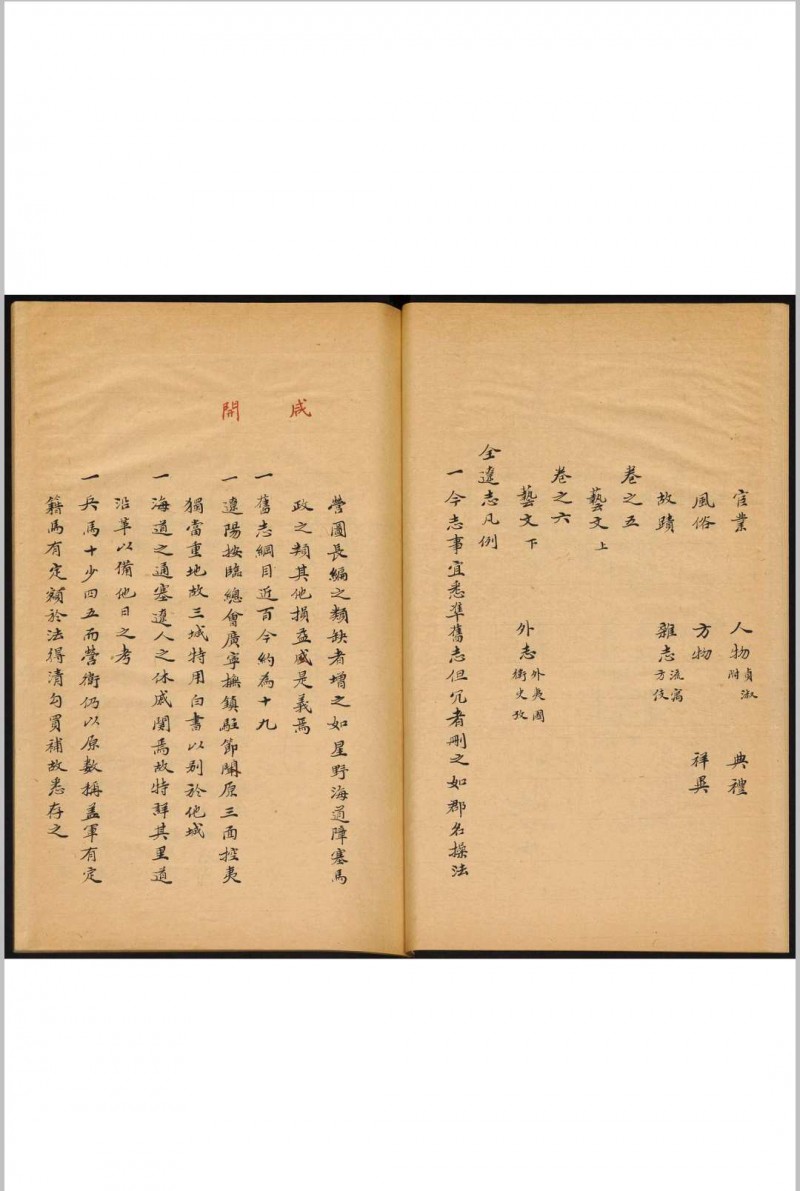 宦業 人物 貞淑附 典禮
風俗 方物 祥異
故蹟 雜志 流寓方伎
卷之五
藝文上
卷之六
藝文下 外志 外夷國衛史攷
全遼志凡例
一今志事宜悉準舊志但冗者刪之如郡名操法
營圖長編之類缺者增之如星野海道障塞馬
政之類其他損益咸是義焉
咸
一舊志綱目近百今約為十九
一遼陽按臨總會廣寧撫鎮駐節開原三面控夷
開
獨當重地故三城特用白書以別於他城
一海道之通塞遼人之休戚関焉故特詳其里道
沿革以備他日之考
一兵馬十少四五而營衛仍以原數稱盖軍有定
籍馬有定額於法得清勾買補故悉存之